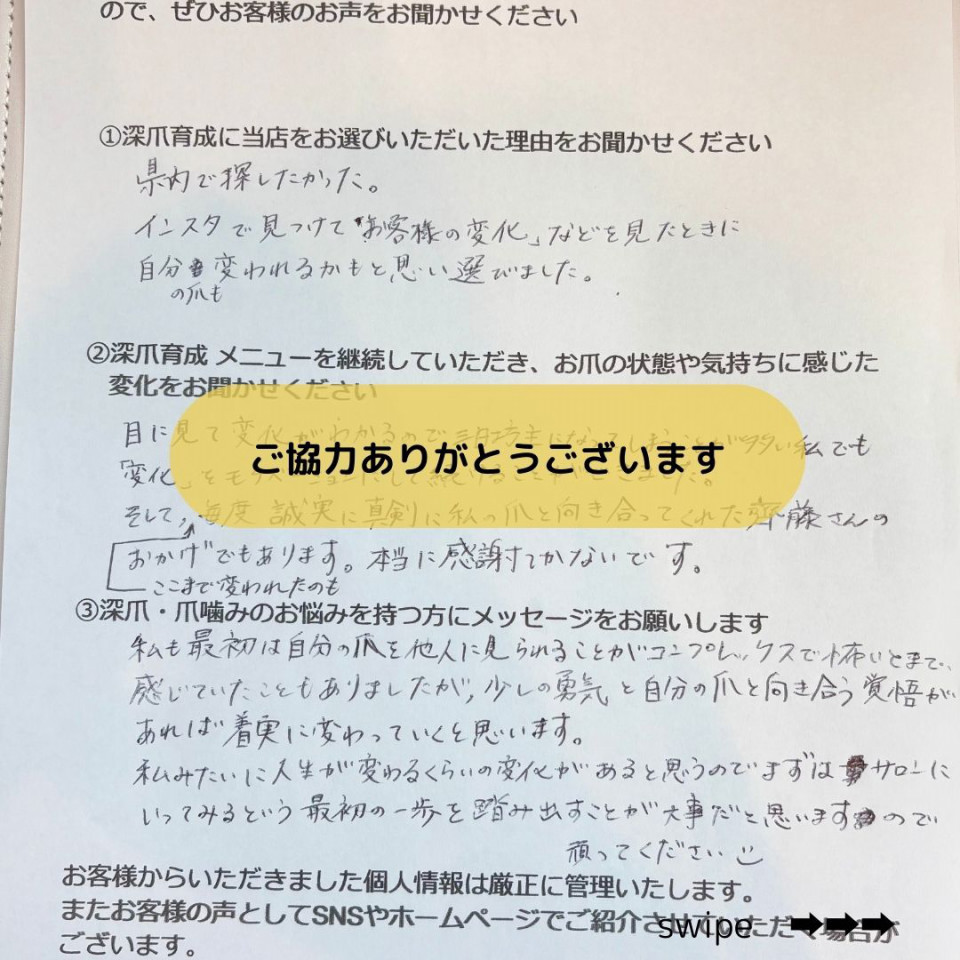 ので、ぜひお客様のお声をお聞かせください
①深爪育成に当店をお選びいただいた理由をお聞かせください
県内で探したかった。
インスタで見つけて"お客様の変化"などを見たときに
自分の爪も変われるかもと思い選びました。
②深爪育成 メニューを継続していただき、お爪の状態や気持ちに感じた
変化をお聞かせください
目に見て変化がわかるので三日坊主になってしまうことが多い私でも
"変化"をモチベーションにして続けることができました。
ご協力ありがとうございます
そして、毎度 誠実に真剣に私の爪と向き合ってくれた齊藤さんの
おかげでもあります。本当に感謝しかないです。
ここまで変われたのも
③深爪・爪噛みのお悩みを持つ方にメッセージをお願いします
私も最初は自分の爪を他人に見られることがコンプレックスで怖いとまで、
感じていたこともありましたが、少しの勇気と自分の爪と向き合う覚悟が
あれば着実に変わっていくと思います。
私みたいに人生が変わるくらいの変化があると思うのでまずはサロンに
いってみるという最初の一歩を踏み出すことが大事だと思いますので
頑ってください
お客様からいただきました個人情報は厳正に管理いたします。
またお客様の声としてSNSやホームページでご紹介させていただく場合が
swipe
ございます。